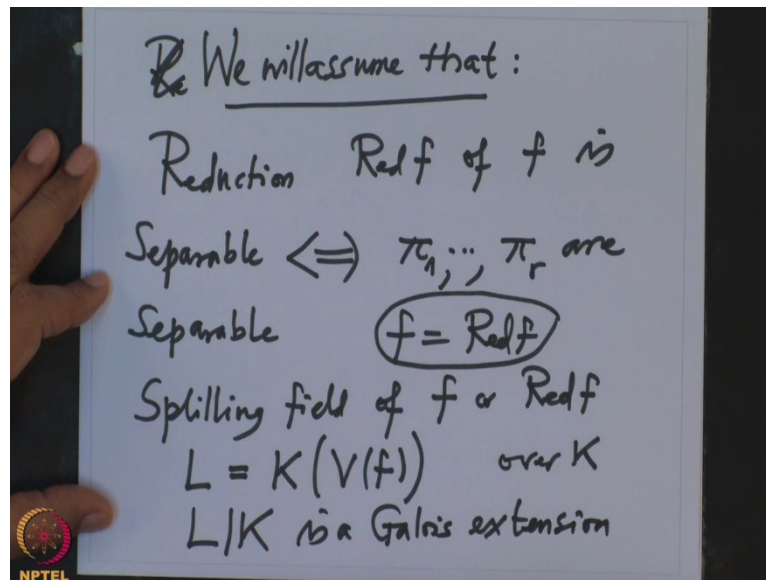 We will assume that :
Reduction Red f of f is
Separable <=> π₁, ..., πᵣ are
Separable f = Red f
Splilling field of f or Red f
L = K(V(f)) over K
L|K is a Galois extension
NPTEL